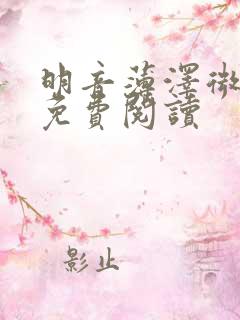 明音薄澤微
免費閱讀
影止